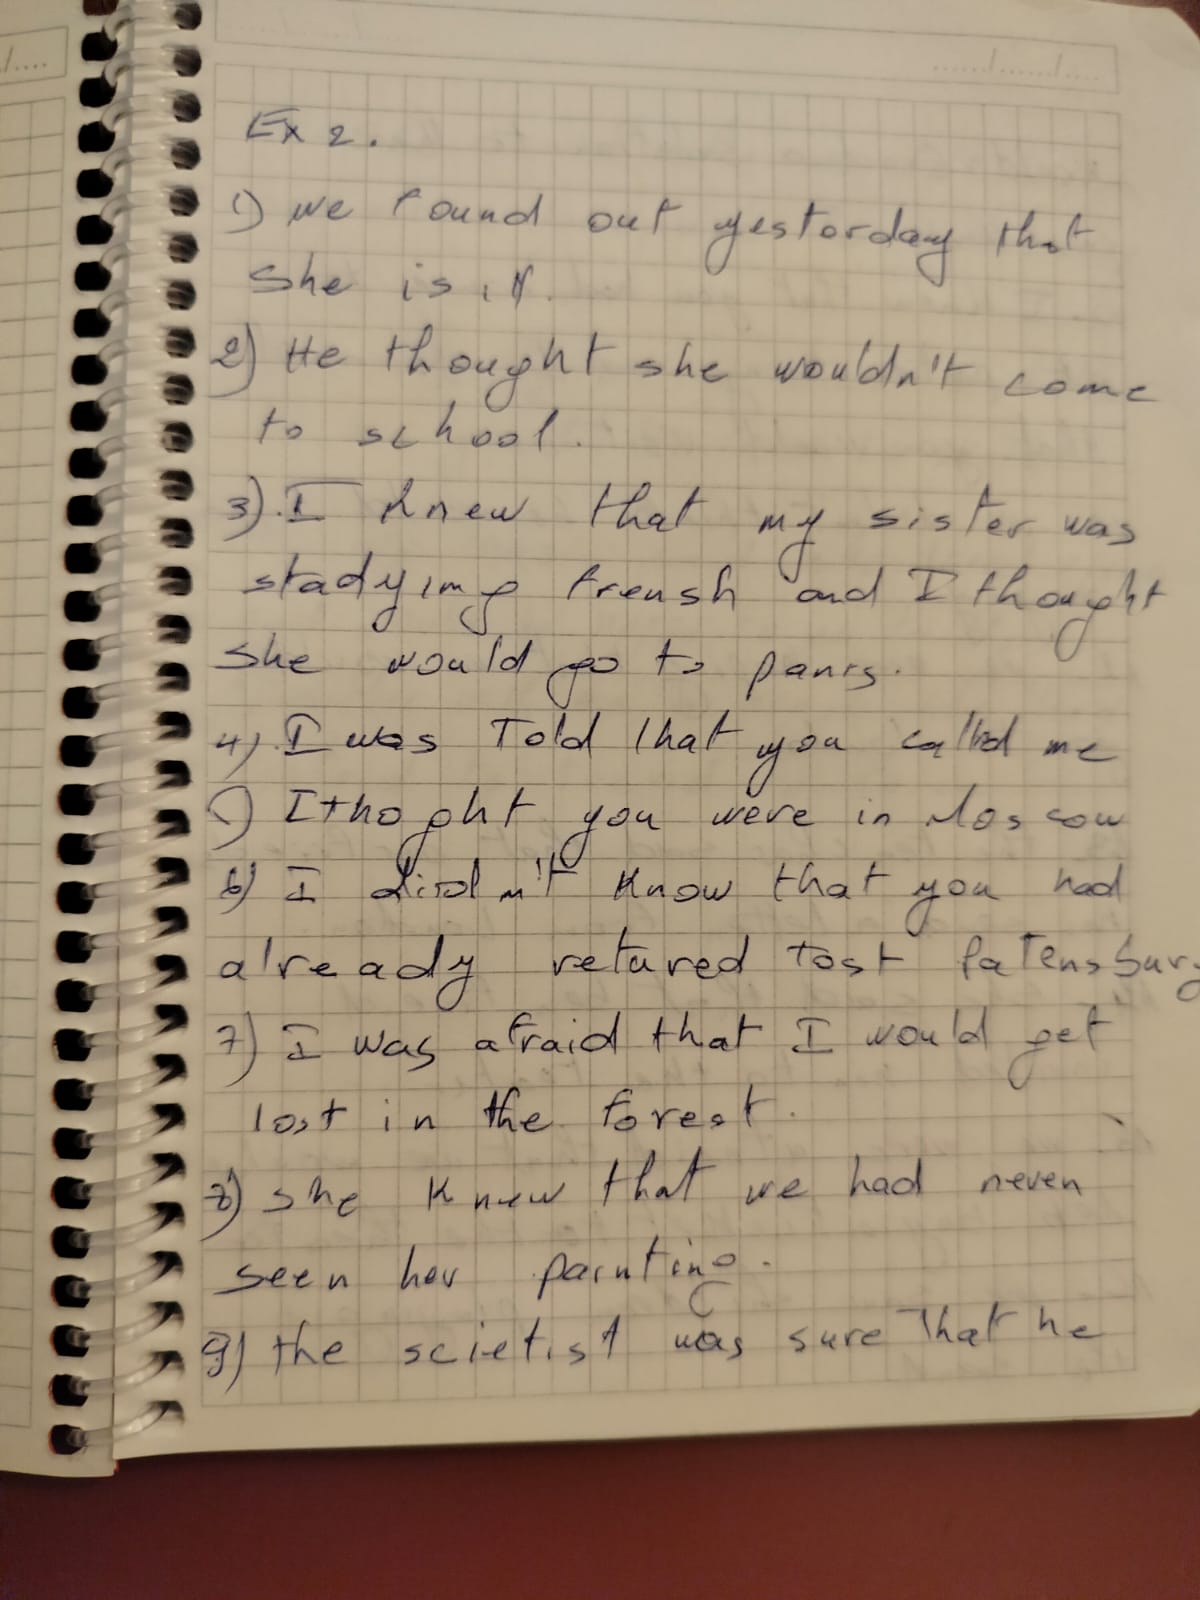 Ex 2.
1) we found out yestorday that
she is ill.
2) He thought she wouldn't come
to school.
3). I knew that my sister was
stadying frensh and I thought
she would go to panis.
4). I was Told that you called me
5) I thoght you were in Moscow
6) I didn't know that you had
already retured to st Patensburg
7) I was afraid that I would get
lost in the forest.
8) she knew that we had never
seen her painting.
9) the scietist was sure that he